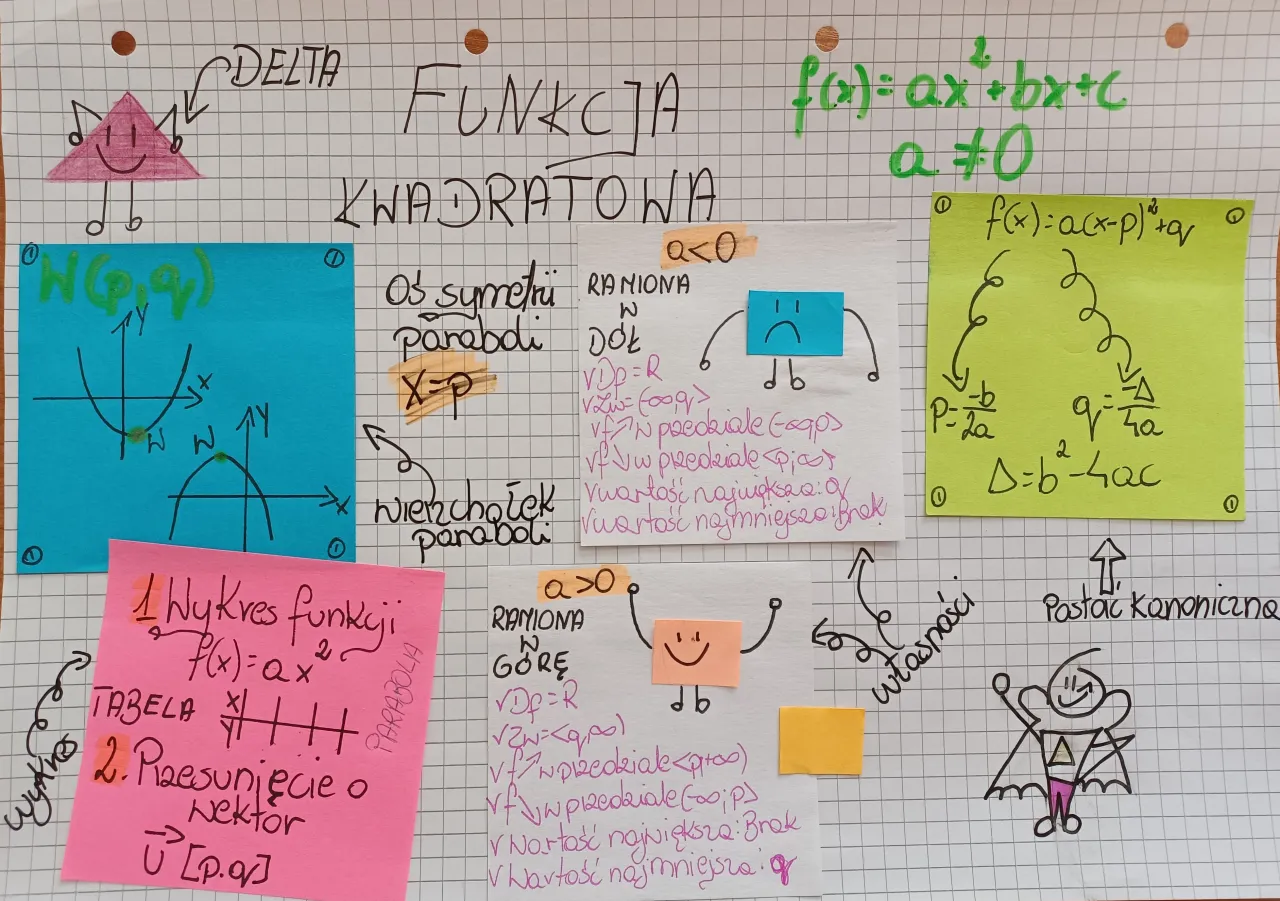 DELTA
FUNKCJA
KWADRATOWA
f(x)=ax²+bx+c
a≠0
W(p,q)
Y
X
W
Y
W
X
Oś symetrii
paraboli
X=p
wierzchołek
paraboli
a<0
RAMIONA
W
DÓŁ
√Df=R
√Zw=(-∞,q>
√f↗w przedziale(-∞,p>
√f↘w przedziale<p;∞)
√wartość największa:q
√wartość najmniejsza:Brak
f(x)=a(x-p)²+q
p=-b/2a
q=-Δ/4a
Δ=b²-4ac
Postać kanoniczna
1 Wykres funkcji
f(x)=ax²
PARABOLA
TABELA
X
Y
2. Przesunięcie o
wektor
U⃗ [p.q]
wykres
a>0
RAMIONA
W
GÓRĘ
√Df=R
√Zw=<q,∞)
√f↗w przedziale<p,+∞)
√f↘w przedziale(-∞;p>
√Wartość największa:Brak
√Wartość najmniejsza:q
własności